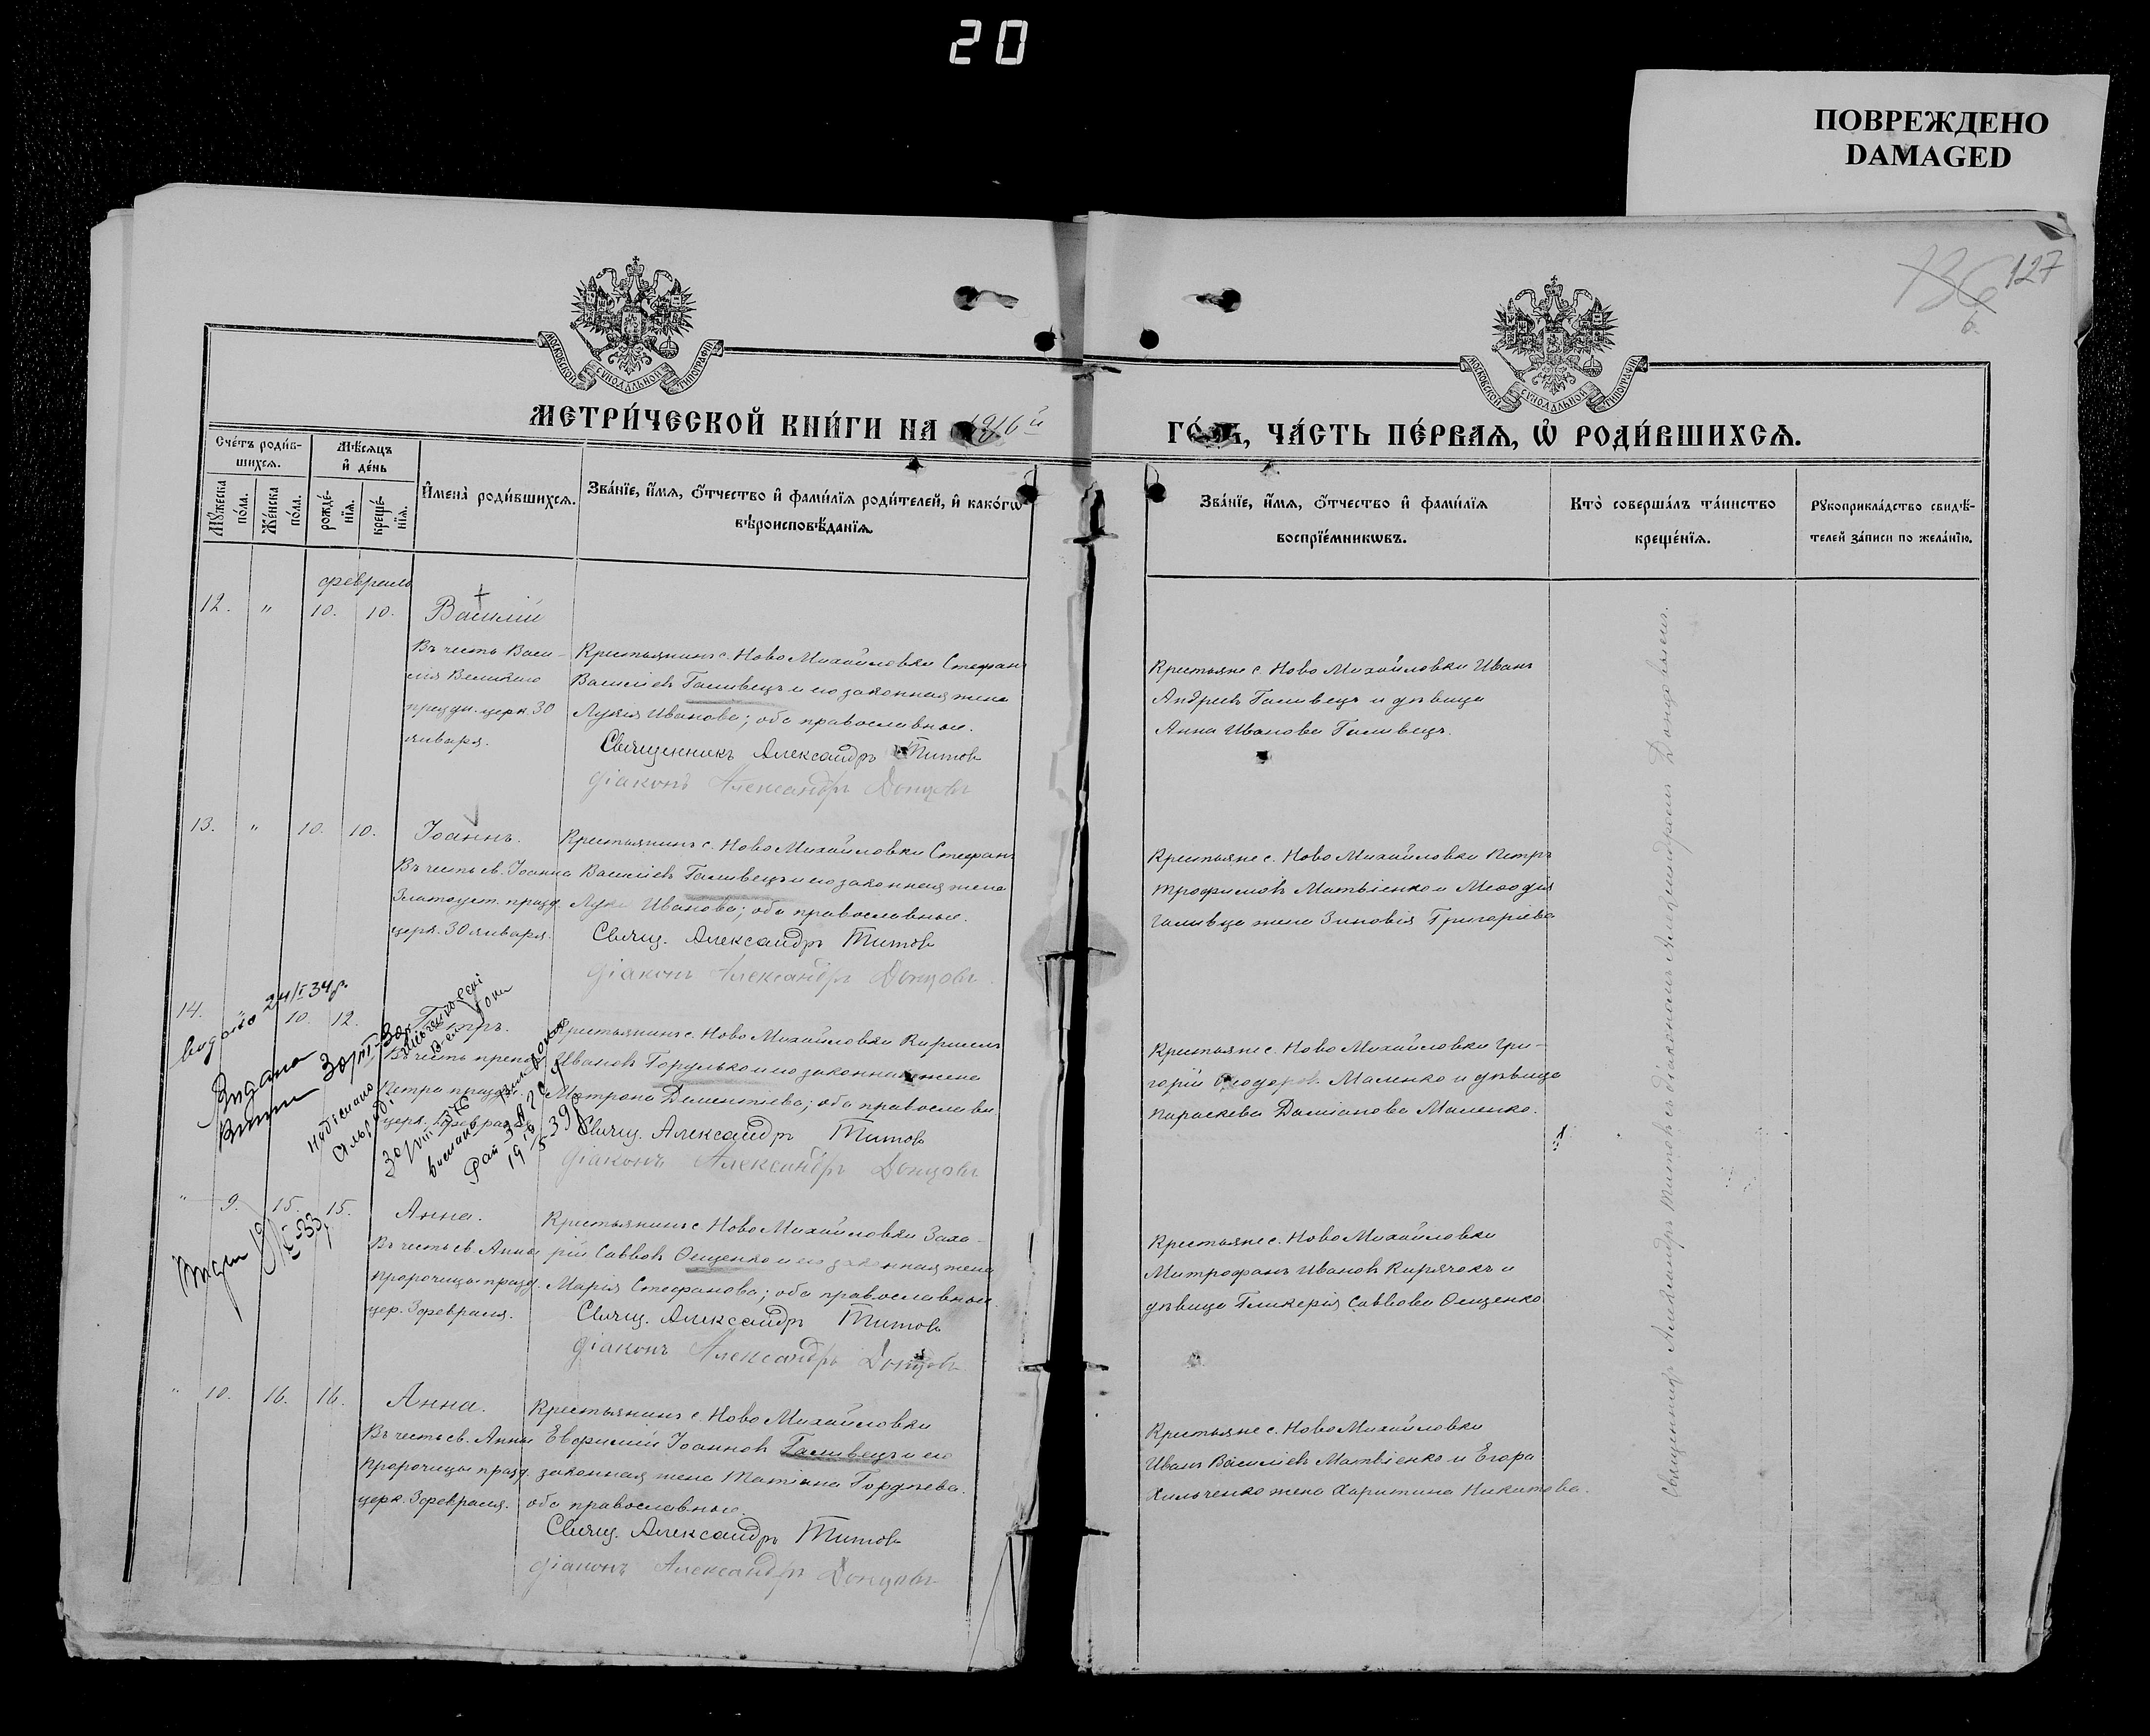 20
ПОВРЕЖДЕНО
DAMAGED
127
МОСКОВСКОЙ СѴНОДАЛЬНОЙ ТИПОГРАФІИ
МОСКОВСКОЙ СѴНОДАЛЬНОЙ ТИПОГРАФІИ
МЕТРИ́ЧЕСКОЙ КНИ́ГИ НА 1916й ГО́ДЪ, ЧА́СТЬ ПЕ́РВАЯ, Ѡ РОДИ́ВШИХСЯ.
Сче́тъ роди́в-
шихся.
Мѣ́сяцъ
и҆ де́нь
Мꙋ́жеска по́ла.
Же́нска по́ла.
рожде́-нїя.
креще́-нїя.
И҆мена̀ роди́вшихся.
Зва́нїе, и҆́мя, ѻ҆́тчество и҆ фами́лїя роди́телей, и҆ како́гѡ
вѣроисповѣ́данїя.
Зва́нїе, и҆́мя, ѻ҆́тчество и҆ фами́лїя
воспрїе́мникѡвъ.
Кто̀ соверша́лъ та́инство
креще́нїя.
Рꙋкоприкла́дство свидѣ́-
телей за́писи по жела́нїю.
февраль
12. " 10. 10. Василій
Въ честь Васи-
лія Великаго
праздн. церк. 30
января.
Крестьянинъ с. Ново Михайловки Стефанъ
Васильевъ Галивецъ и его законная жена
Лукія Иванова; оба православные.
Священникъ Александръ Титовъ
Діаконъ Александръ Донцовъ
Крестьяне с. Ново Михайловки Иванъ
Андреевъ Галивецъ и дѣвица
Анна Иванова Галивецъ.
13. " 10. 10. Іоаннъ.
Въ честь св. Іоанна
Златоуст. празд.
церк. 30 января.
Крестьянинъ с. Ново Михайловки Стефанъ
Васильевъ Галивецъ и его законная жена
Иванова; оба православные.
Свящ. Александръ Титовъ
Діаконъ Александръ Донцовъ
Крестьяне с. Ново Михайловки Петръ
Трофимовъ Матвіенко и Меѳодія
Галивца жена Зиновія Григоріева
14. " 10. 12. Петръ.
видано 24/I 34 р.
Видано
Въ честь
Петра
церк.
Крестьянинъ с. Ново Михайловки Кириллъ
Ивановъ Горулько и его законная жена
Матрона Дементіева; оба православн.
Свящ. Александръ Титовъ
Діаконъ Александръ Донцовъ
Крестьяне с. Ново Михайловки Гри-
горій Ѳеодоровъ Маленко и дѣвица
Параскева Даміанова Маленко.
" 9. 15. 15. Анна.
Въ честь св. Анны
Пророчицы празд.
цер. 3 февраля.
Крестьянинъ с. Ново Михайловки Заха-
рій Савовъ Ощенко и его законная жена
Марія Стефанова; оба православные.
Свящ. Александръ Титовъ
Діаконъ Александръ Донцовъ
Крестьяне с. Ново Михайловки
Митрофанъ Ивановъ Кирячокъ и
дѣвица Гликерія Саввова Ощенко
" 10. 16. 16. Анна.
Въ честь св. Анны
Пророчицы празд.
церк. 3 февраля.
Крестьянинъ с. Ново Михайловки
Евфимій Іоанновъ Галивецъ и его
законная жена Татіана Гордѣева.
оба православные.
Свящ. Александръ Титовъ
Діаконъ Александръ Донцовъ
Крестьяне с. Ново Михайловки
Иванъ Васильевъ Матвіенко и Егора
Хильченко жена Харитина Никитова.
Священникъ Александръ Титовъ съ діакономъ Александромъ Донцовымъ.